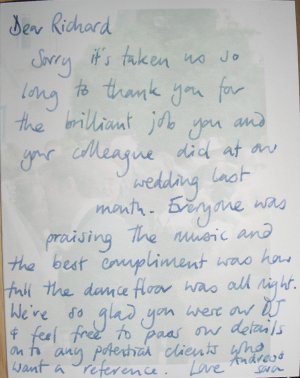 Dear Richard
Sorry it's taken us so
long to thank you for
the brilliant job you and
your colleague did at our
wedding last
month. Everyone was
praising the music and
the best compliment was how
full the dancefloor was all night.
We're so glad you were our DJ
& feel free to pass our details
on to any potential clients who
want a reference. Love Andrew &
Sara